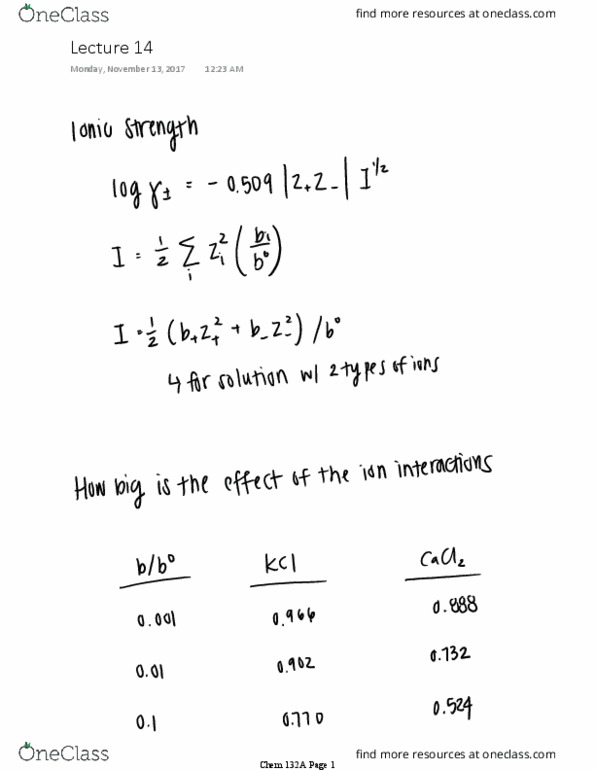 OneClass
find more resources at oneclass.com
Lecture 14
Monday, November 13, 2017 12:23 AM
Ionic Strength
log γ± = - 0.509 |Z+Z-| I^1/2
I = 1/2 Σi Zi² (bi/b°)
I = 1/2 (b+Z+² + b-Z-²) / b°
↳ for solution w/ 2 types of ions
How big is the effect of the ion interactions
b/b° KCl CaCl₂
0.001 0.966 0.888
0.01 0.902 0.732
0.1 0.770 0.524
OneClass
find more resources at oneclass.com
Chem 132A Page 1